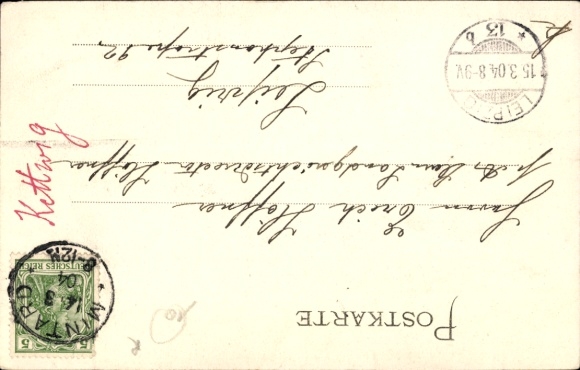 POSTKARTE
DEUTSCHES REICH
5 5
MINTARD
14 3
04
8-12N
Herrn Erich Höffner
Landgerichtsdirector Höffner
Leipzig
Stephanstrasse 12
Kettwig
LEIPZIG
15.3.04.8-9V.
* 13 b